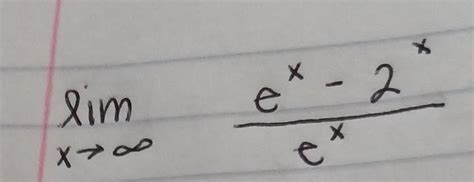 lim x→∞ (e^x - 2^x) / e^x